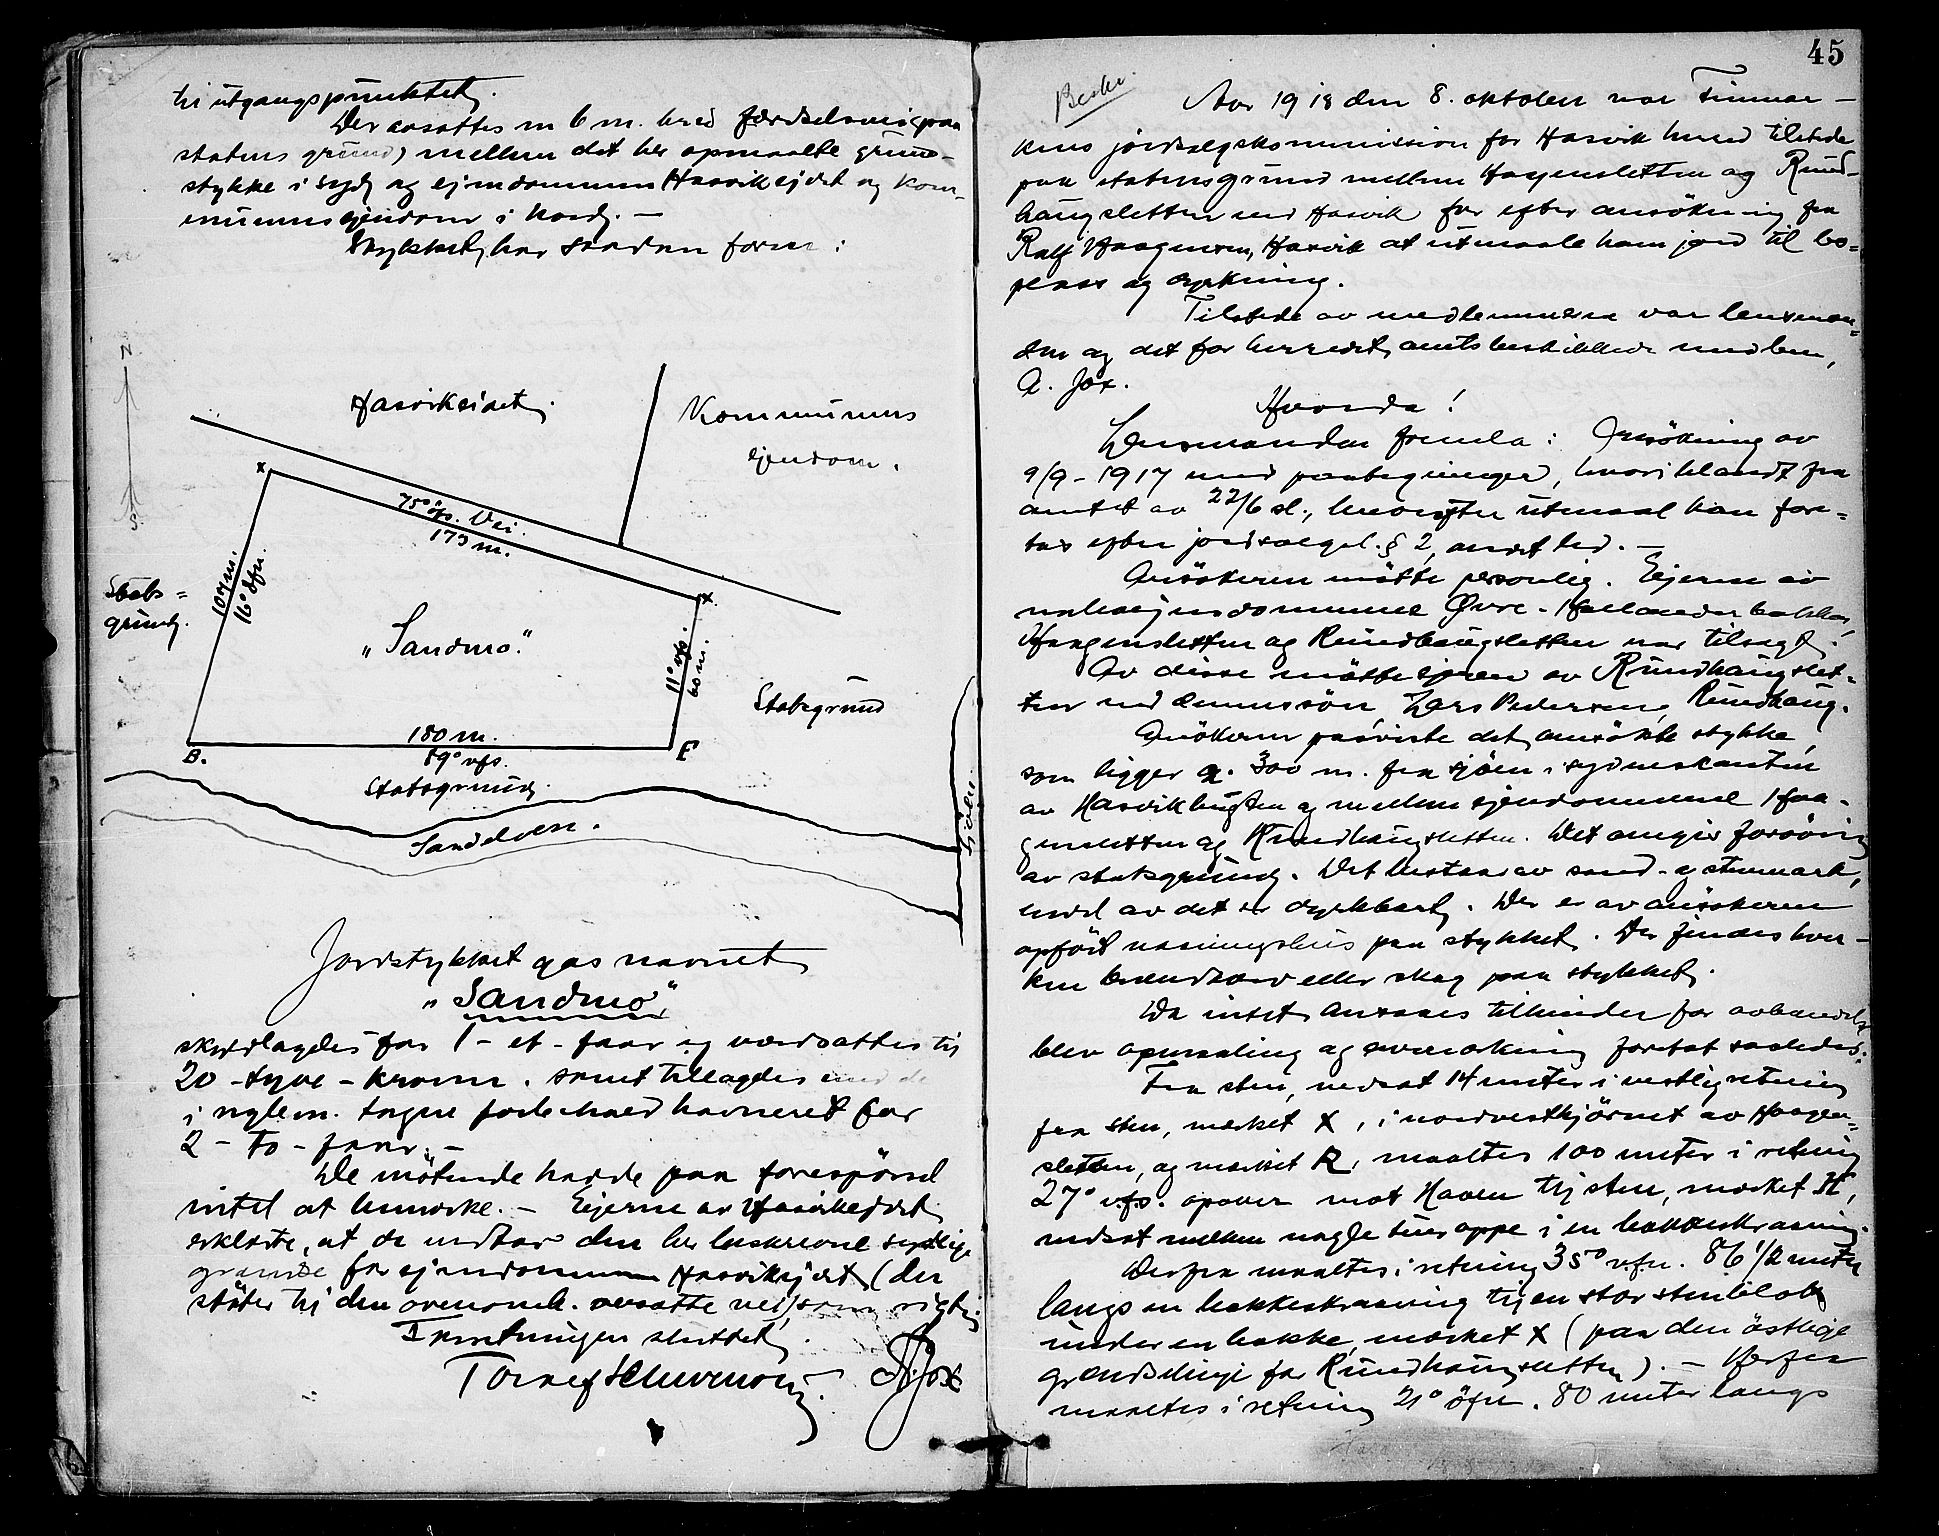 til utgangspunktet.
Der avsattes en 6 m. bred færdselsvei paa
statens grund mellem det her opmaalte grund-
stykke i syd og ejendommen Hasvikejdet og kom-
munens ejendom i nord. —
Stykket har saadan form:
N
S.
Hasvikeidet.
Kommunens
ejendom.
75° øfs. Vei.
173 m.
107 m.
16° øfn.
Stats=
grund.
„Sandmo."
11° vfs.
60 m.
Statsgrund
180 m.
B.
E
89° vfs.
Statsgrund.
Sandelven.
Sjøen
Jordstykket gas navnet
„Sandmo"
skyldlagdes for 1 - et - fær og værdsattes til
20 - tyve - kroner. samt tillagdes
i nylen. tagne havneret for
2 - to - fær. —
De møtende hadde paa forespørsel
intet at bemerke. — Eierne av Hasvikejdet
erklærte, at de vedtar den her beskrevne sydlige
grænse for ejendommen Hasvikejdet (der
støter til den ovenomh. avsatte vei) som rigtig.
Forretningen sluttet.
45
Beskr.
Aar 1918 den 8. oktober var Finmar-
kens jordsalgskommission for Hasvik herred tilstede
paa statens grund mellem Haagensletten og Rund-
haugsletten ved Hasvik for efter ansøkning fra
Ralf Haagensen, Hasvik at utmaale ham jord til bo=
plass og dyrkning.
Tilstede av medlemmerne var lensman=
den og det for herredet amtsbeskikkede medlem,
A. Jox.
Hvorda!
Lensmanden fremla: Ansøkning av
9/9 - 1917 med paategninger, hvoriblandt fra
amtet av 22/6 d., hvorefter utmaal kan fore=
tas efter jordsalgsl. § 2, andet led. —
Ansøkeren møtte personlig. Eierne av
naboejendommene Øvre - Hollenderbakken,
Haagensletten og Rundhaugsletten var tilsagt.
Av disse møtte ejeren av Rundhaugslet=
ten ved dennes søn Lars Pedersen, Rundhaug.
Ansøkeren paaviste det ansøkte stykke,
som ligger ca. 300 m. fra sjøen i sydøstkanten
av Hasvikbugten og mellem ejendommene Haa-
gensletten og Rundhaugsletten. Det omgis forøvrig
av statsgrund. Det bestaar av sand- og stenmark,
endel av det er dyrkbart. Der er av ansøkeren
opført vaaningshus paa stykket. Der findes hver-
ken brændtorv eller skog paa stykket.
Da intet ansaaes tilhinder for avhændelse
blev opmaaling og avmerkning foretat saaledes:
Fra sten, nedsat 14 meter i vestlig retning
fra sten, merket X, i nordvesthjørnet av Haagen=
sletten, og merket R, maaltes 100 meter i retning
27° v.f.s. opover mot Haaen til sten, merket H,
nedsat mellem nogle tuer oppe i en bakkeskraaning.
Derfra maaltes i retning 35° v.f.n. 86 1/2 meter
langs en bakkeskraaning til en stor stenblok
under en bakke, merket X (paa den østlige
grændselinje for Rundhaugsletten). — Herfra
maaltes i retning 21° øfn. 80 meter langs